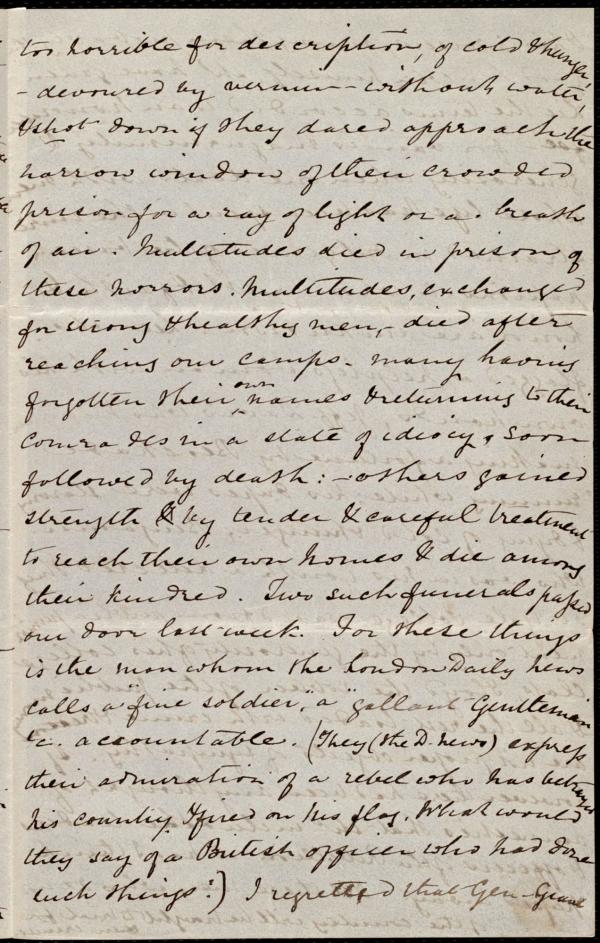 too horrible for description, of cold & hunger,
- devoured by vermin - without water,
& shot down if they dared approach the
narrow window of their crowded
prison for a ray of light or a breath
of air. Multitudes died in prison of
these horrors. Multitudes, exchanged
for strong & healthy men, - died after
reaching our camps - many having
forgotten their own names & returning to their
comrades in a state of idiocy, soon
followed by death: - others gained
strength & by tender & careful treatment
to reach their own homes & die among
their kindred. Two such funerals passed
our door last week. For these things
is the man whom the London Daily News
calls a "fine soldier," a "gallant Gentleman"
&c. accountable. (They (the D. News) express
their admiration of a rebel who has betrayed
his country & fired on his flag. What would
they say of a British officer who had done
such things?) I regretted that Gen. Grant